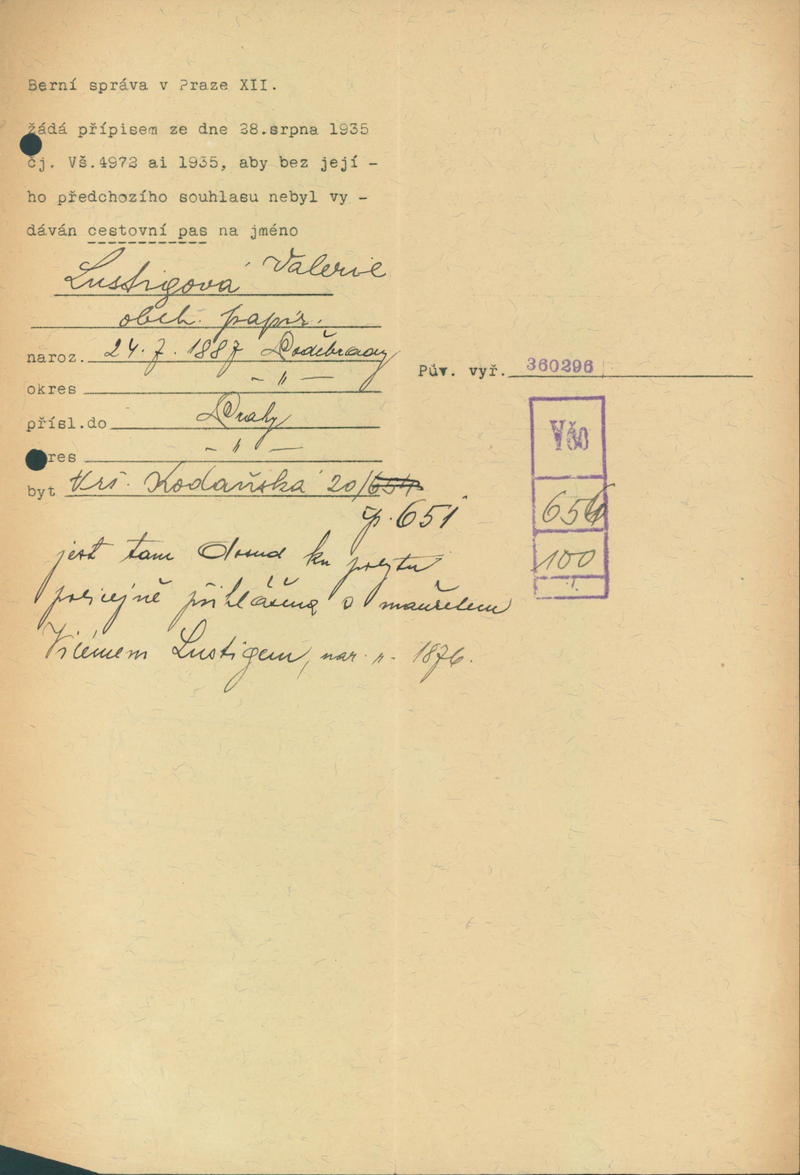 Berní správa v Praze XII.
žádá přípisem ze dne 28.srpna 1935
čj. Vš.4972 ai 1935, aby bez její -
ho předchozího souhlasu nebyl vy -
dáván cestovní pas na jméno
Lustigová Valerie
obch. papír.
naroz. 24.7.1887 Poděbrady
okres - " -
přísl.do Prahy
okres - " -
byt Vrš. Kodaňská 20/654
čp. 651
jest tam dosud ku pobytu
policejně přihlášena s manželem
Vilémem Lustigem, nar. r. 1876.
Pův. vyř. 360296
Všo
654
100